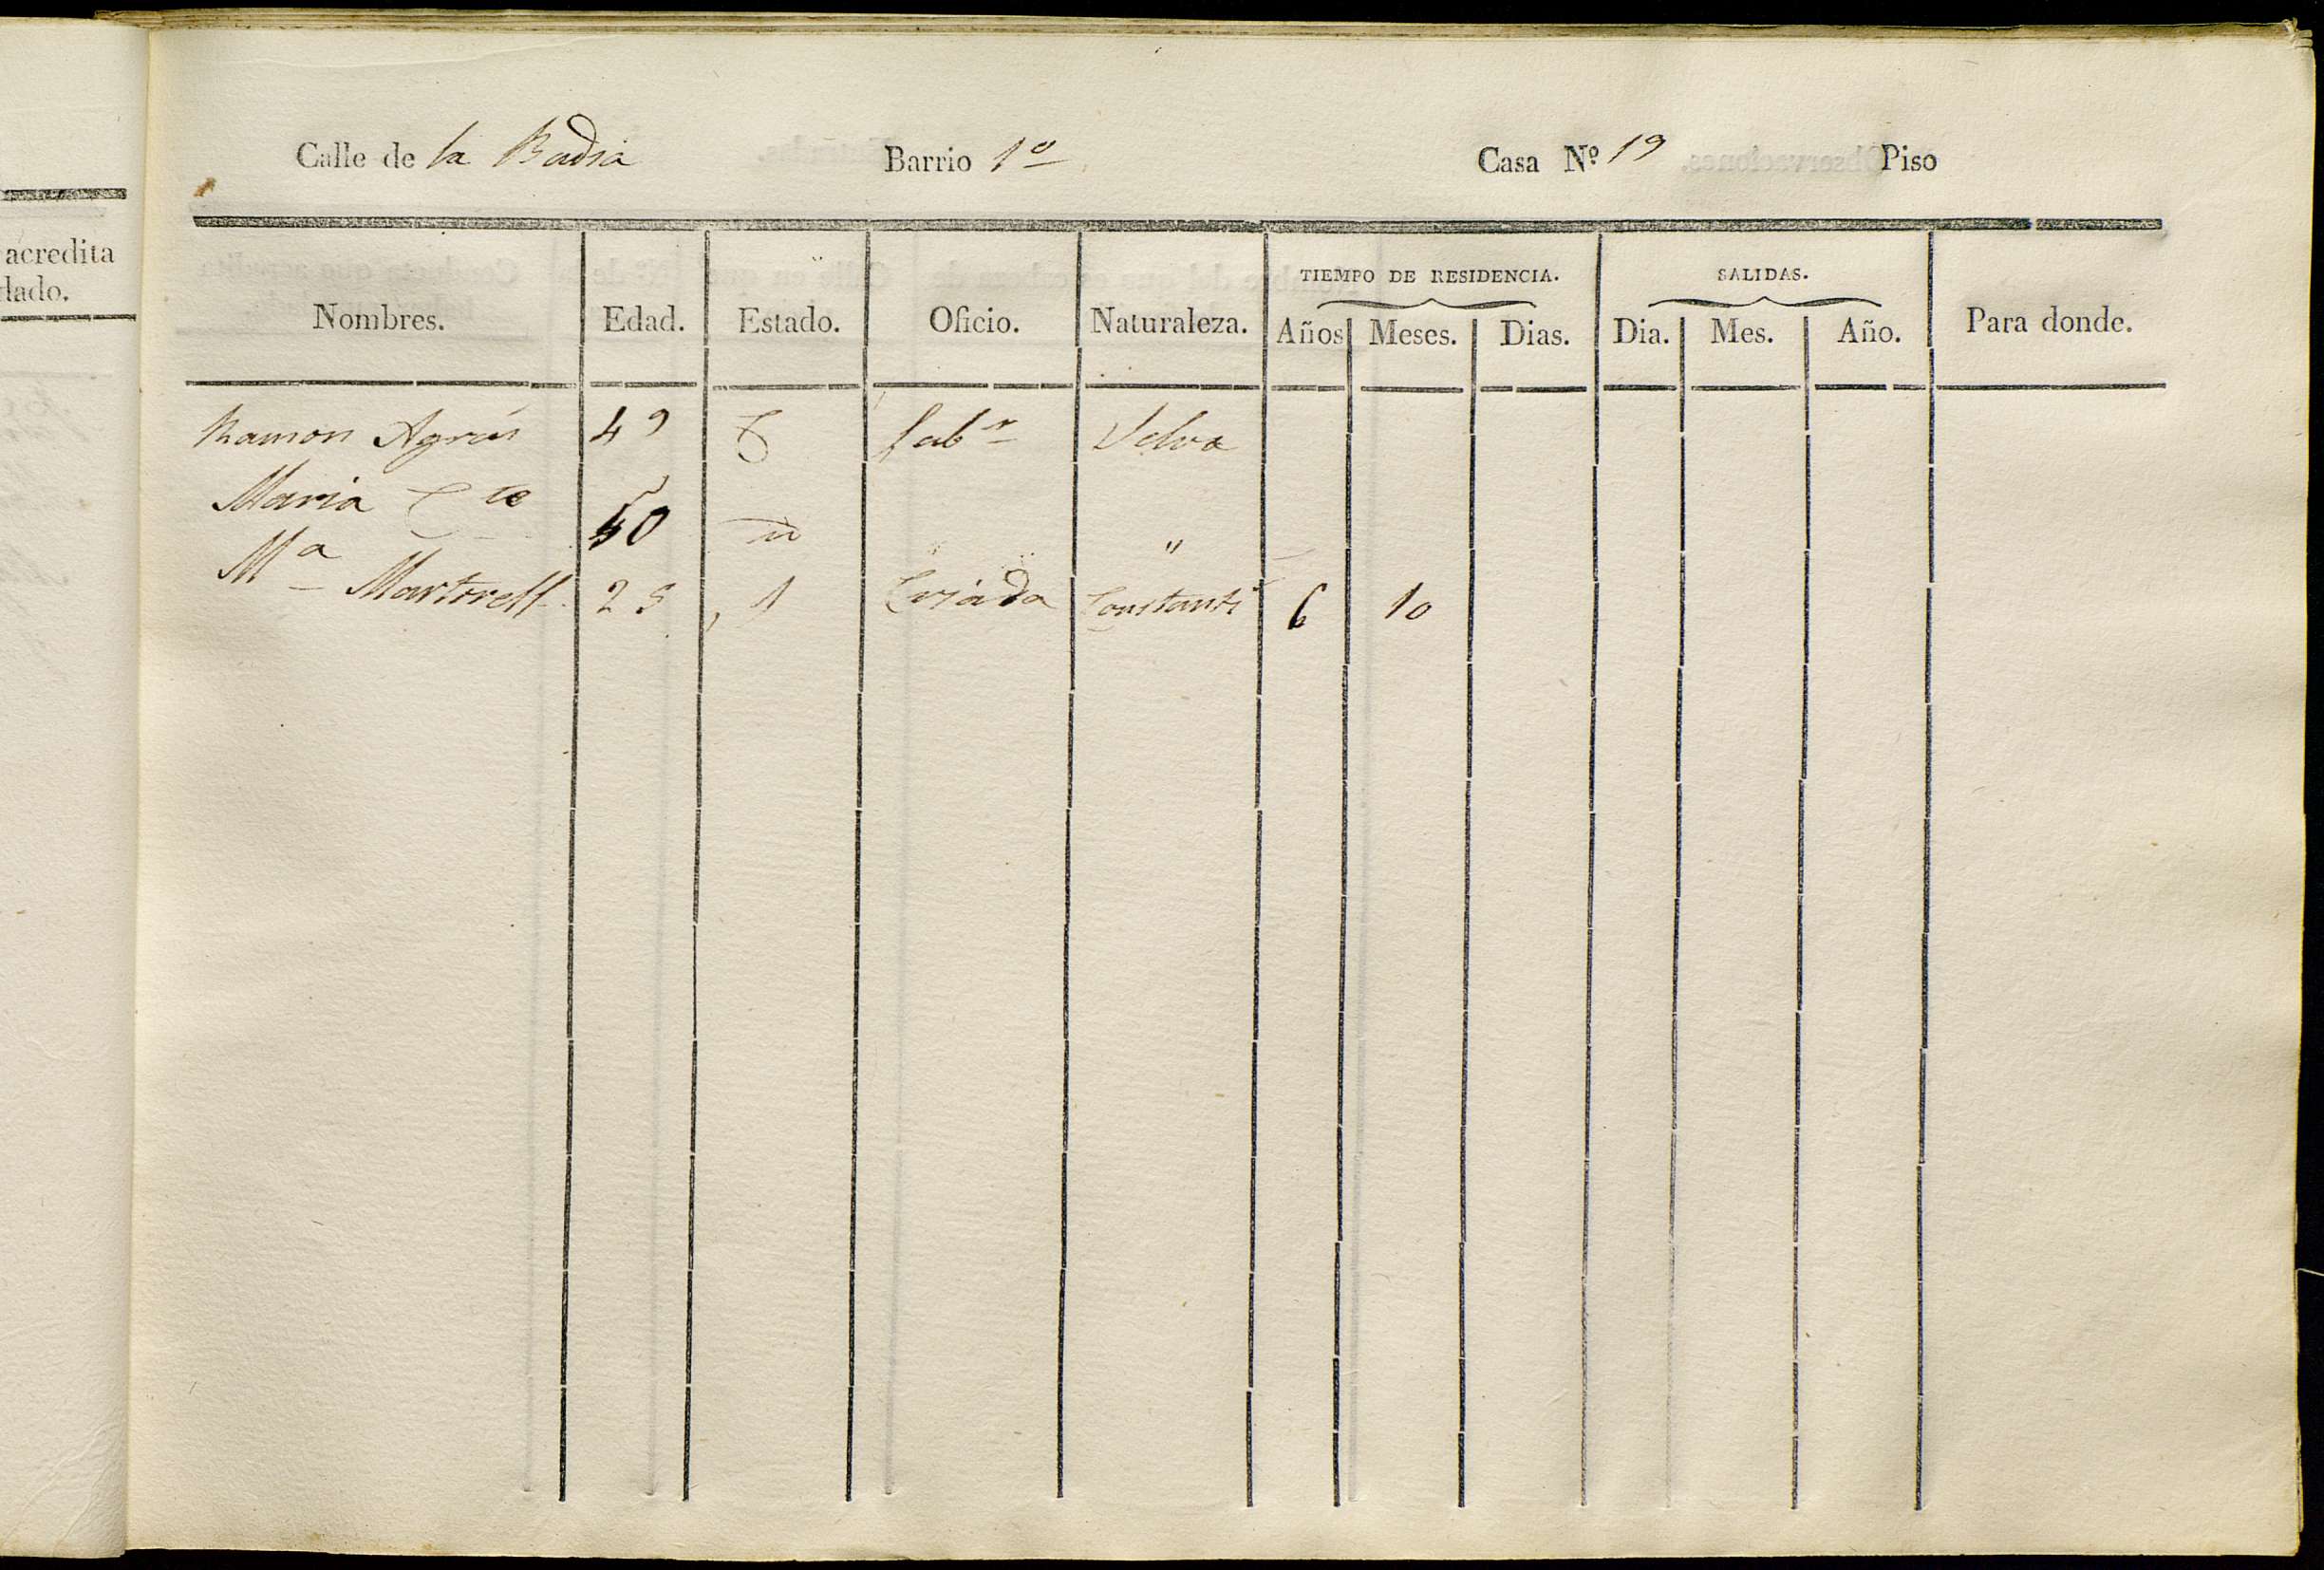 Calle de la Badia Barrio 1º Casa Nº 19 Piso
acredita
dado.
TIEMPO DE RESIDENCIA. SALIDAS.
Nombres. Edad. Estado. Oficio. Naturaleza. Años Meses. Dias. Dia. Mes. Año. Para donde.
Ramon Agràs 49 C Labr Selva
Maria Cte 50 id "
Mª Martorell 25 S Criada Constanti 6 10